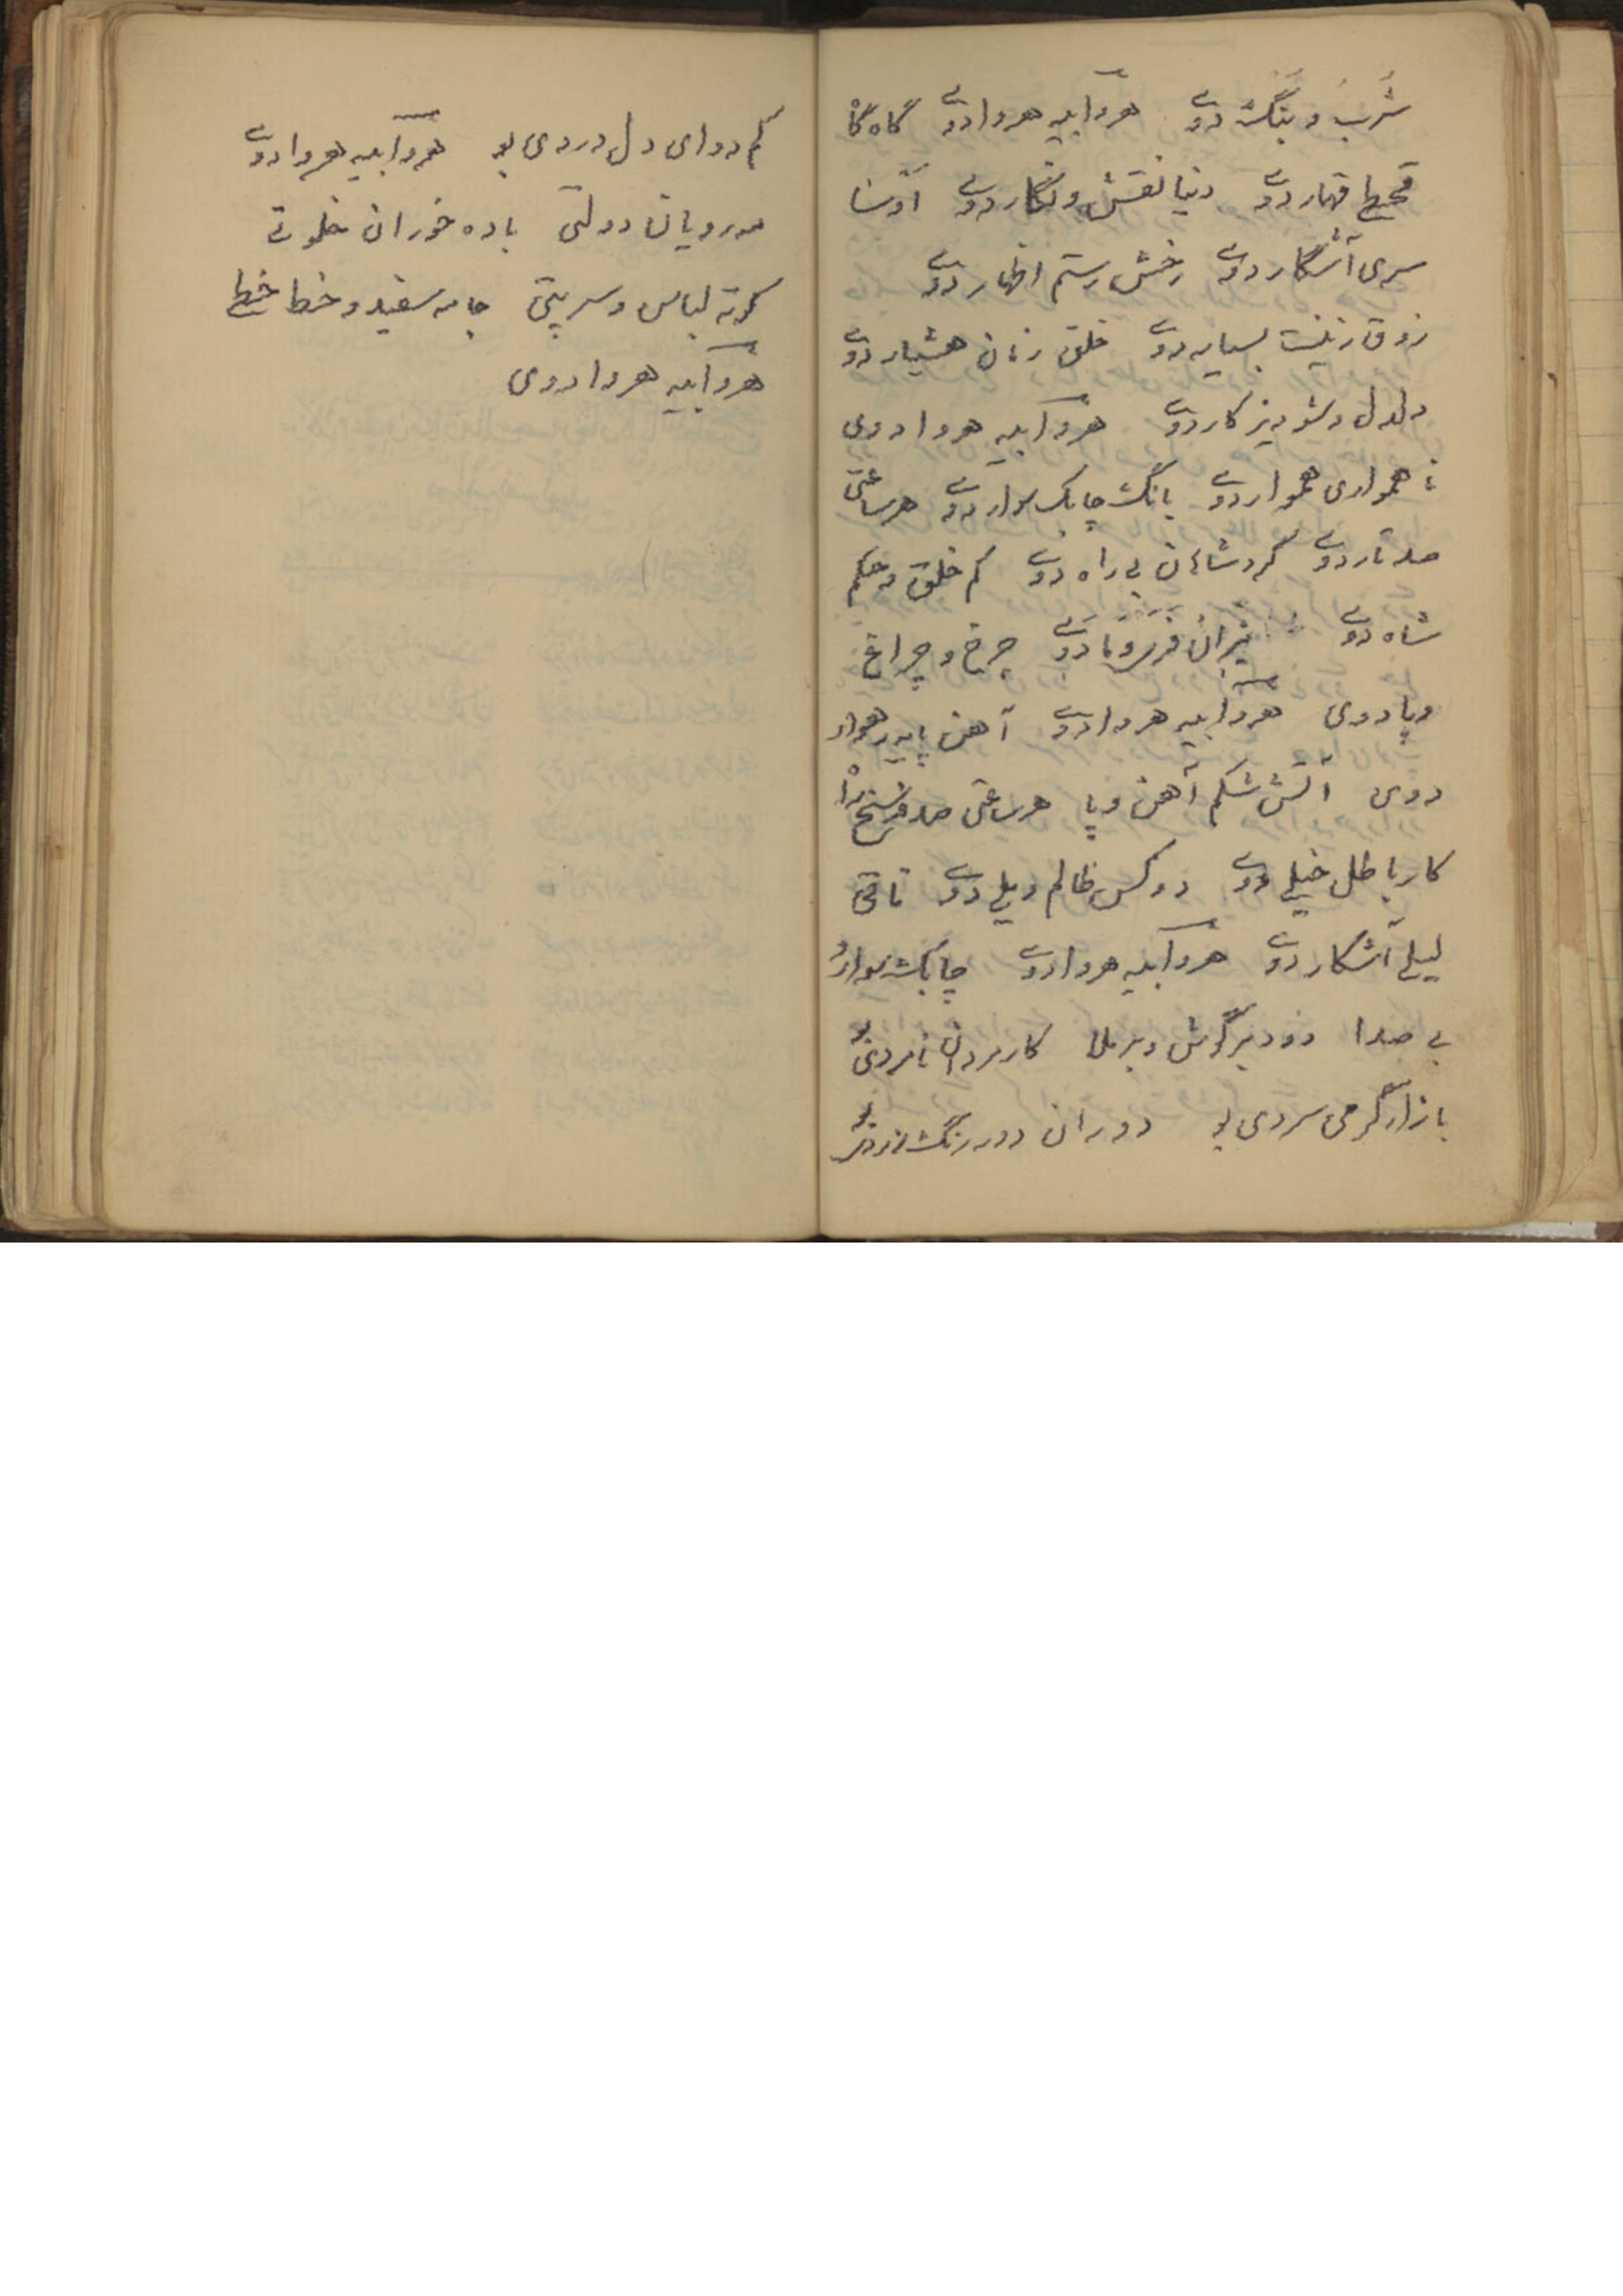 شَرَب و بَنگ دوے هر وابیه هر وا دوے گاه گا
قحط قهار دوے دنیا نقش و نگار دوے
سری آشکار دوے رخش رستم اظهار دوے
زوق زینت بسیار دوے خلق زنان هشیار دوے
دلدل و شودیز کار دوے هر وابیه هر وا دوی
نا همواری هموار دوے بانگ چابک سوار دوے هر ساعتی
صد تار دوے گرد شاهان بے راه دوے کم خلق و حکم
شاه دوے چرخ و چراغ
و پا دوی هر وابیه هر وا دوے آهن پایه رهوار
دوی آتش شکم آهن و پا هر ساعتی صد فرسخ
کار باطل خیلے دوے دو کس ظالم ویلے دوے
لیلے آشکار دوے هر وابیه هر وا دوے چابک سوار
بے صدا دود بر گوش و بر ملا کار مردان نامردی بو
بازار گرمی سردی بو دوران دور رنگ زردی بو
کم دوای دل دردی بو هر وابیه هر وا دوے
مه رویان دولتی باده خوران خلوتے
کرته لباس و سرپتی جامه سفید و خط خطے
هر وابیه هر وا دوی